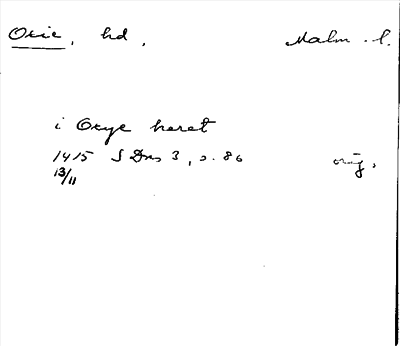 Oxie, hd, Malm. l.
i Oxye heret
1415 SDns 3, s. 86 orig.
13/11